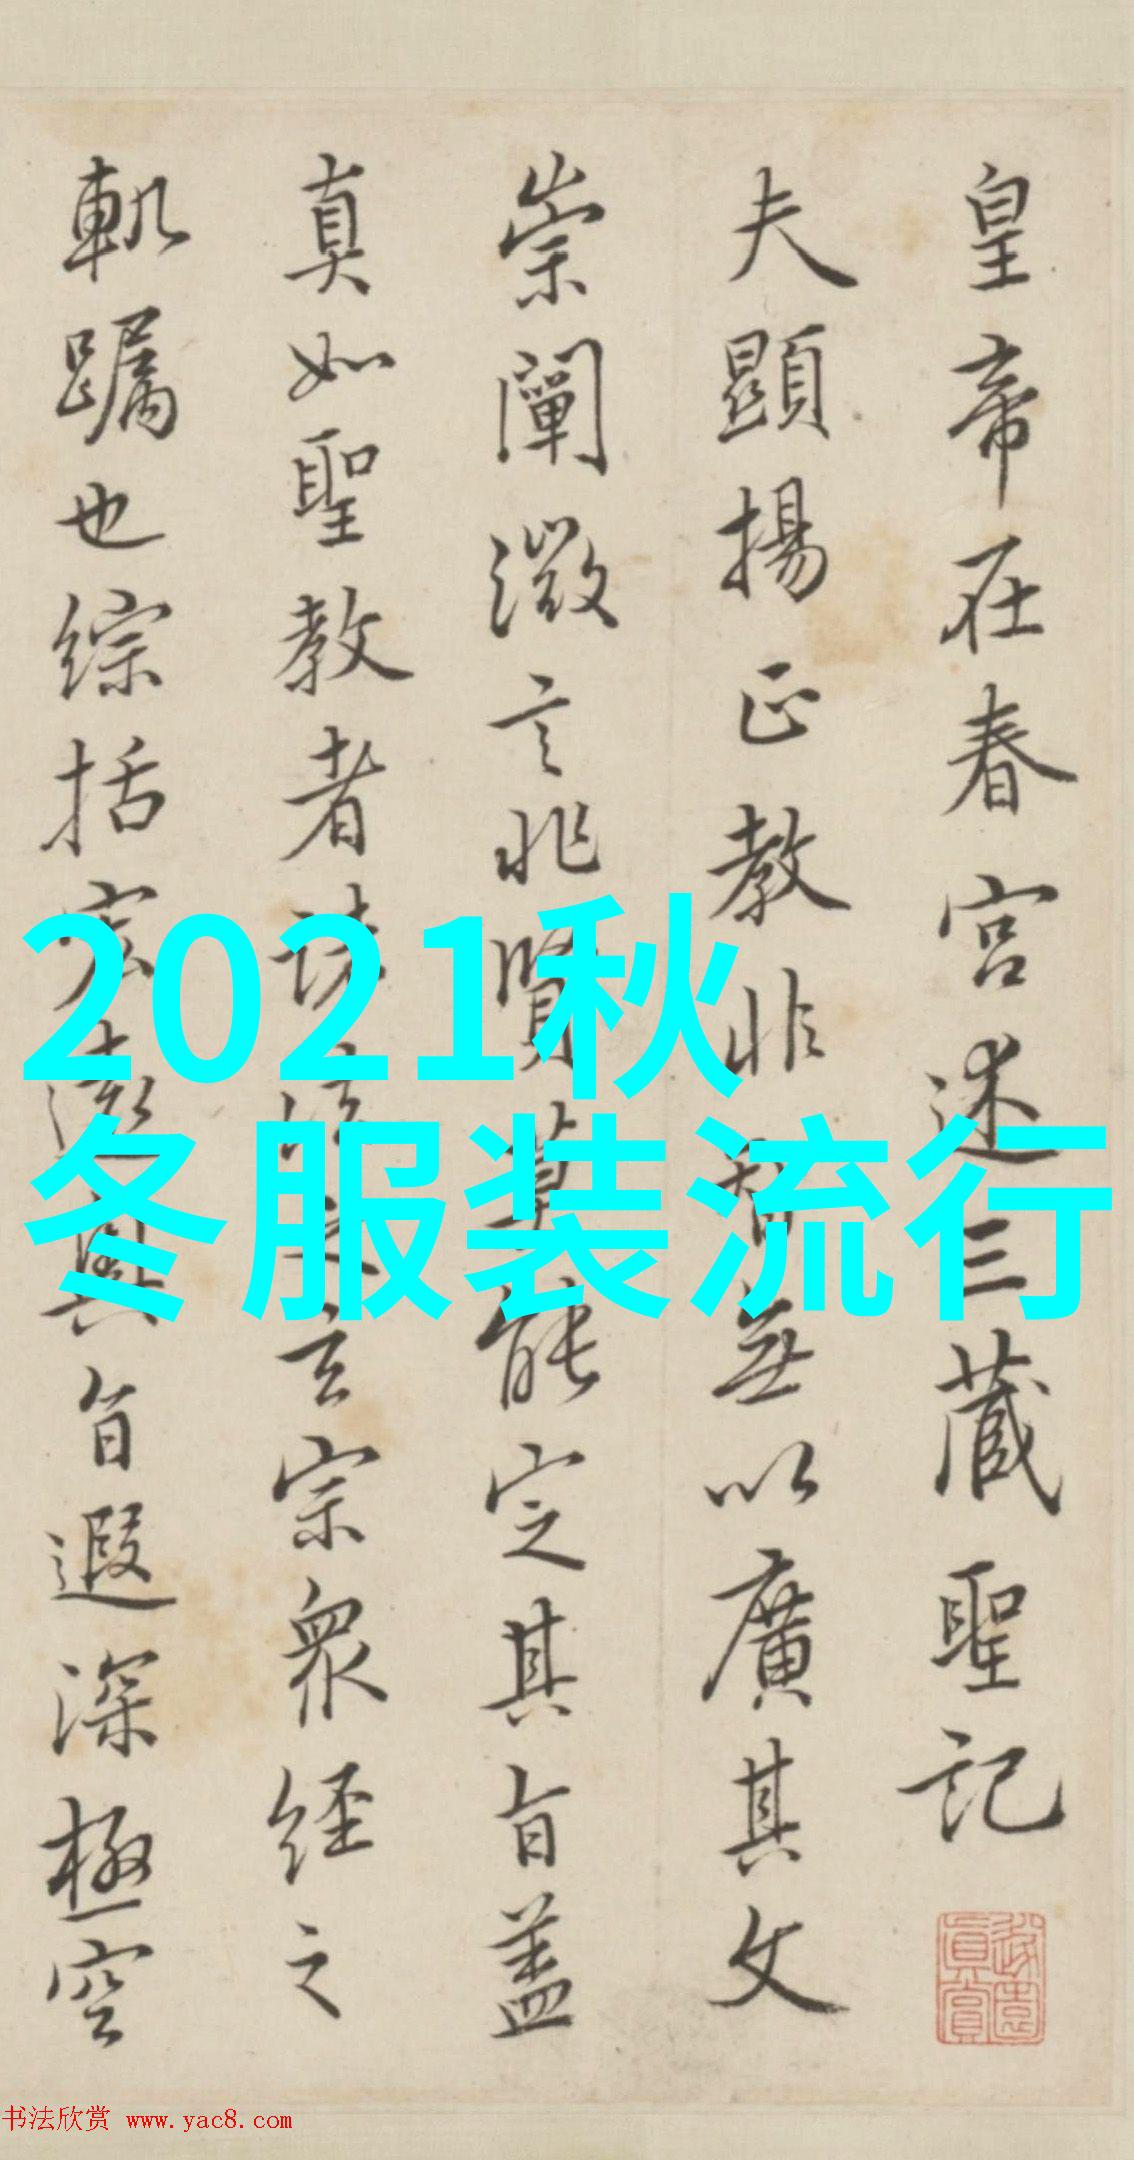 皇帝在春宮述三藏聖記
夫顯揚正教非智無以廣其文
崇闡微言非賢莫能定其旨蓋
真如聖教者諸法之玄宗眾經之
軌躅也綜括宏遠奧旨遐深極空
2021秋
冬服装流行
书法欣赏 www.yac8.com